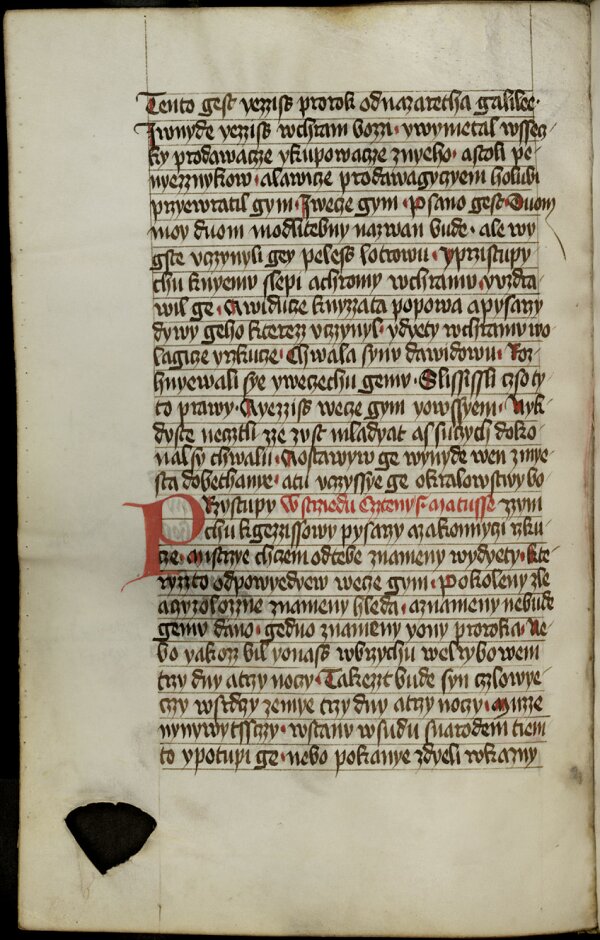 Tento gest yezziss prorok odnazaretha galilee·
Iwnyde yezziss wchram bozzi· ywymetal wssec
ky prodawacze ykupowacze znyeho· astoli pe
nyezznykow· alawicze prodawagyczyem holubi
przyewratil gym· Iwecze gym· Psano gest· Duom
moy duom modlitebny nazwan bude· ale wy
gste vczynyli gey peless lotrowu· yprzistupy
chu knyemu slepi achromy wchramu· yvzdra
wil ge· Awiducze knyzzata popowa apysarzy
dywy geho kterezz vczynyl· ydyety wchramu wo
lagicze yrzkucze· Chwala synu dawidowu· Roz
hnyewali sye ywecechu gemu· Slississli czso ty
to prawy· Ayezziss wecze gym yowssyem· Nyk
dyste necztli zze zvst mladyat assucych doko
nalsy chwalu· Aostawyw ge wynyde wen zmye
sta dobethanie· atu vczyssye ge okralowstwy bo
PRzystupy Wstrziedu Cztenys· Matusse zzym
chu kgezzissowy pysarzy azakonnyczi rzku
cze· mistrzye chcem odtebe znameny wydyety· kte
ryzzto odpowyedyew wecze gym· Pokoleny zle
acyzolozzne znameny hleda· aznameny nebude
gemu dano· gedno znameny yony proroka· Ne
bo yakozz bil yonass wbrzychu welrybowem
trzy dny atrzy noczy· Takezzt bude syn czlowye
czy wsrdczy zemye trzy dny atrzy noczy· Muzze
nynywytssczy· wstanu wsudu snarodem tiem
to ypotupi ge· nebo pokanye zdyeli wkazny